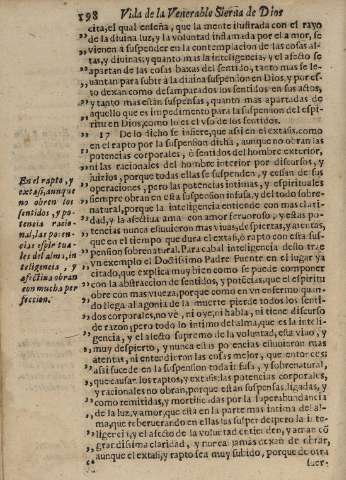 198 Vida de la Venerable Sierua de Dios
,, cita, el qual enseña, que la mente ilustrada con el rayo
,, de la diuina luz, y la voluntad inflamada por el amor, se
,, vienen a suspender en la contemplacion de las cosas al-
,, tas, y diuinas, y quanto mas la inteligencia, y el afecto se
,, apartan de las cosas baxas del sentido, tanto mas se le-
,, uantan para subir a la diuina suspension en Dios, y por es-
,, to dexan como desamparados los sentidos en sus actos,
,, y tanto mas estàn suspensas, quanto mas apartadas de
,, aquello que es impedimento para la suspension del espi-
,, ritu en Dios, como lo es el vso de los sentidos.
,, 17 De lo dicho se infiere, que assi en el extasis, como
,, en el rapto por la suspension dicha, aunque no obran las
,, potencias corporales, ò sentidos del hombre exterior,
,, ni las racionales del hombre interior por discursos, y
,, juizios, porque todas ellas se suspenden, y cessan de sus
,, operaciones, pero las potencias intimas, y espirituales
,, siempre obran en esta suspension infusa, y del todo sobre-
,, natural, porque la inteligencia entiende con mas clari-
,, dad, y la afectiua ama con amor feruoroso, y estas po-
,, tencias nunca estuuieron mas viuas, despiertas, y atentas,
,, que en el tiempo que dura el extasis, ò rapto con esta sus-
,, pension sobrenatural. Para cabal inteligencia desto trae
,, vn exemplo el Doctissimo Padre Puente en el lugar ya
,, citado, que explica muy bien como se puede componer
,, con la abstraccion de sentidos, y potencias, que el espiritu
,, obre con mas viueza, porque como en vn enfermo quan-
,, do llega la agonia de la muerte pierde todos los senti-
,, dos corporales, no vè, ni oye, ni habla, ni tiene discurso
,, de razon; pero todo lo intimo del alma, que es la inteli-
,, gencia, y el afecto supremo de la voluntad, està viuo, y
,, muy despierto, y nunca estas potencias estuuieron mas
,, atentas, ni entendieron las cosas mejor, que entonces:
,, assi sucede en la suspension toda infusa, y sobrenatural,
,, que causan los raptos, y extasis: las potencias corporales,
,, y racionales no obran, porque estàn suspensas, ligadas, y
,, como remitidas, y mortificadas por la superabundancia
,, de la luz, y amor, que està en la parte mas intima del al-
,, ma, que reberuerando en ellas las suspende; pero la inte-
,, ligencia, y el afecto de la voluntad entienden, y aman con
,, grandissima claridad, y nunca jamàs dexan de obrar,
,, aunque el extasi, y rapto sea muy subido, porque de otra
suer-
En el rapto, y
extasi, aunque
no obren los
sentidos, y po-
tencia racio-
nal, las poten-
cias espiritua-
les del alma, in-
teligencia, y
afectiua obran
con mucha per-
feccion.